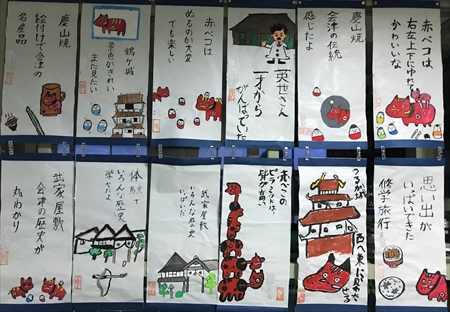 赤べコは
右左上下にゆれ
かわいいな
慶山焼
会津の伝統
感じたよ
英世さん
才から
がんばっていた
赤べコ
ぬるのが大変
でも楽しい
鶴ヶ城
景色がきれい
また見たい
慶山焼
絵付けで会津の
名産品
思い出が
いっぱいできた
修学旅行
つるが城
赤べこの
ピラミッドは
武家屋敷
いろんな歴史
いっぱいだ
体験で
いろんな歴史
学べたよ
武家屋敷
会津の歴史が
丸わかり